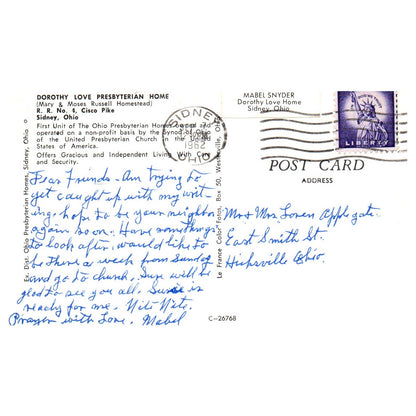 DOROTHY LOVE PRESBYTERIAN HOME
(Mary & Moses Russell Homestead)
R. R. No. 8, Cisco Pike
Sidney, Ohio
First Unit of The Ohio Presbyterian Homes owned and
operated on a non-profit basis by the Synod of Ohio
of the United Presbyterian Church in the United
States of America.
Offers Gracious and Independent Living With Care
and Security.
Dear Friends - Am trying to
get caught up with my writ-
ing; hope to be your neighbor
again soon. Have somethings
to look after. would like to
be there a week from Sunday
and go to church. Sure will be
glad to see you all. is
ready for me. Nite Nite.
Prayer with Love. Mabel
Ex. Dist. Ohio Presbyterian Homes, Sidney, Ohio
Le France Color Fotos, Box 50, Westerville, Ohio
C-26768
MABEL SNYDER
Dorothy Love Home
Sidney, Ohio
SIDNEY
1962
OHIO
LIBERTY
POST CARD
ADDRESS
Mr & Mrs Loren Applegate.
East Smith St.
Hicksville Ohio.